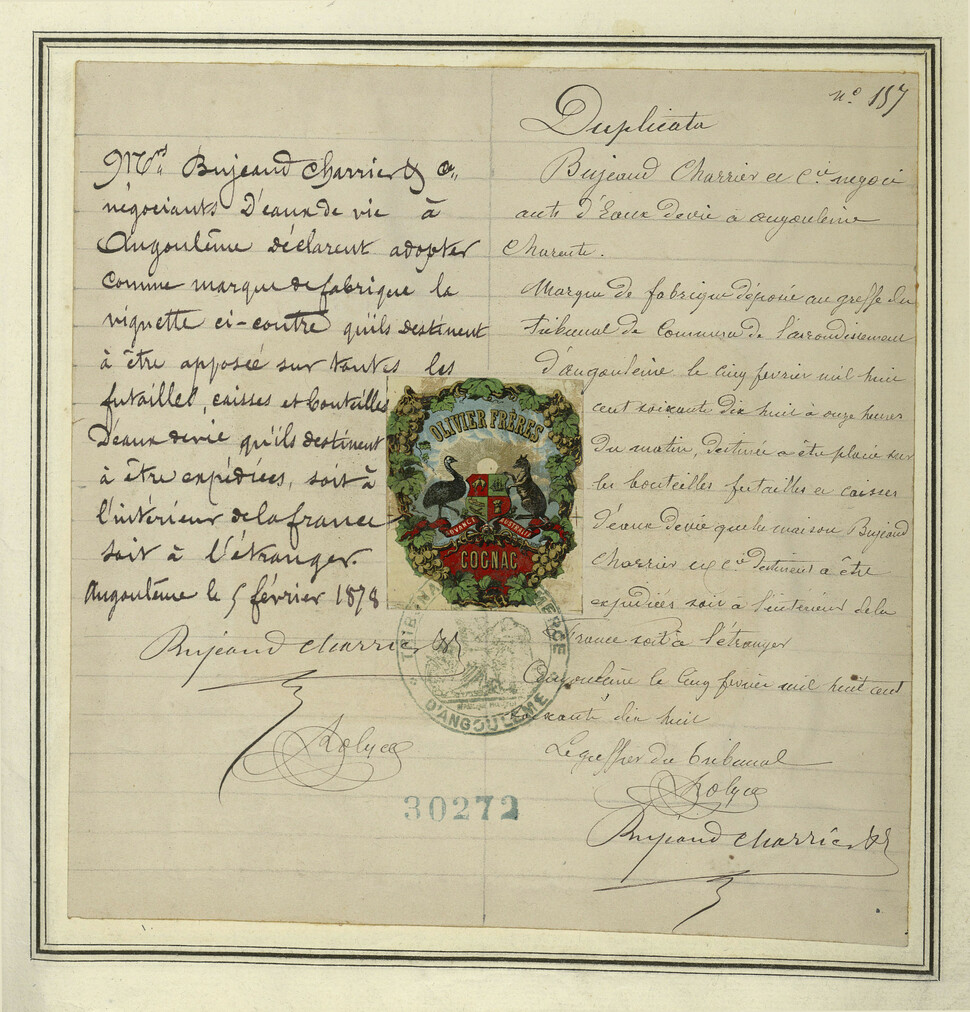 Mrs Bujeaud Charrier & Cie
négociants D'eaux de vie à
Angoulême déclarent adopter
comme marque de fabrique la
vignette ci-contre qu'ils destinent
à être apposée sur toutes les
futailles, caisses et bouteilles
D'eaux de vie qu'ils destinent
à être expédiées, soit à
l'intérieur de la france
soit à l'étranger.
Angoulême le 5 février 1878
Bujeaud Charrier &
OLIVIER FRÈRES
ADVANCE AUSTRALIA
COGNAC
TRIBUNAL DE COMMERCE
D'ANGOULÊME
30272
no 157
Duplicata
Bujeaud Charrier et Cie négoci
ants d'Eaux de vie à angoulême
Charente.
Marque de fabrique déposée au greffe du
tribunal de Commerce de l'arrondissement
d'angoulême le cinq fevrier mil huit
cent soixante dix huit à onze heures
du matin, destinée a être placée sur
les bouteilles futailles et caisses
d'eaux de vie que la maison Bujeaud
Charrier et Cie destinent a être
expédiées soit à l'intérieur de la
France soit à l'étranger
Angoulême le cinq fevrier mil huit cent
soixante dix huit
Le greffier du tribunal
Bujeaud Charrier &